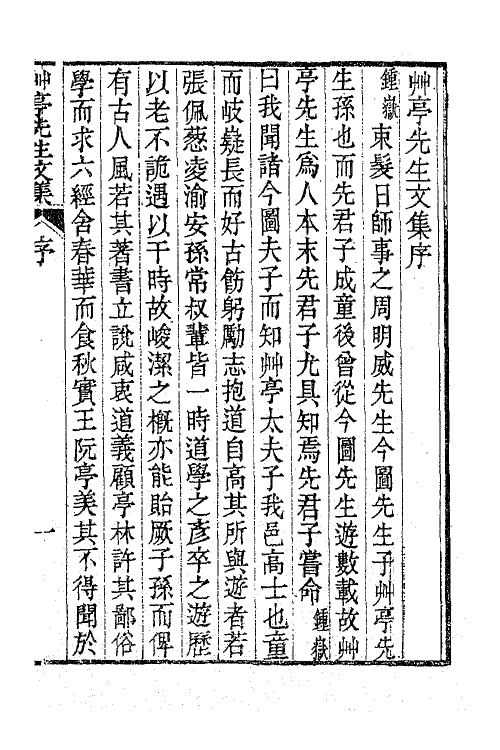 艸亭先生文集序
鍾嶽束髮日師事之周明威先生今圖先生子艸亭先
生孫也而先君子成童後曾從今圖先生遊數載故艸
亭先生爲人本末先君子尤具知焉先君子嘗命鍾嶽
曰我聞諸今圖夫子而知艸亭太夫子我邑高士也童
而岐嶷長而好古飭躬勵志抱道自高其所與遊者若
張佩葱凌渝安孫常叔輩皆一時道學之彥卒之遊歷
以老不詭遇以干時故峻潔之概亦能貽厥子孫而俾
有古人風若其著書立說咸衷道義顧亭林許其鄙俗
學而求六經舍春華而食秋實王阮亭美其不得聞於
艸亭先生文集 序 一